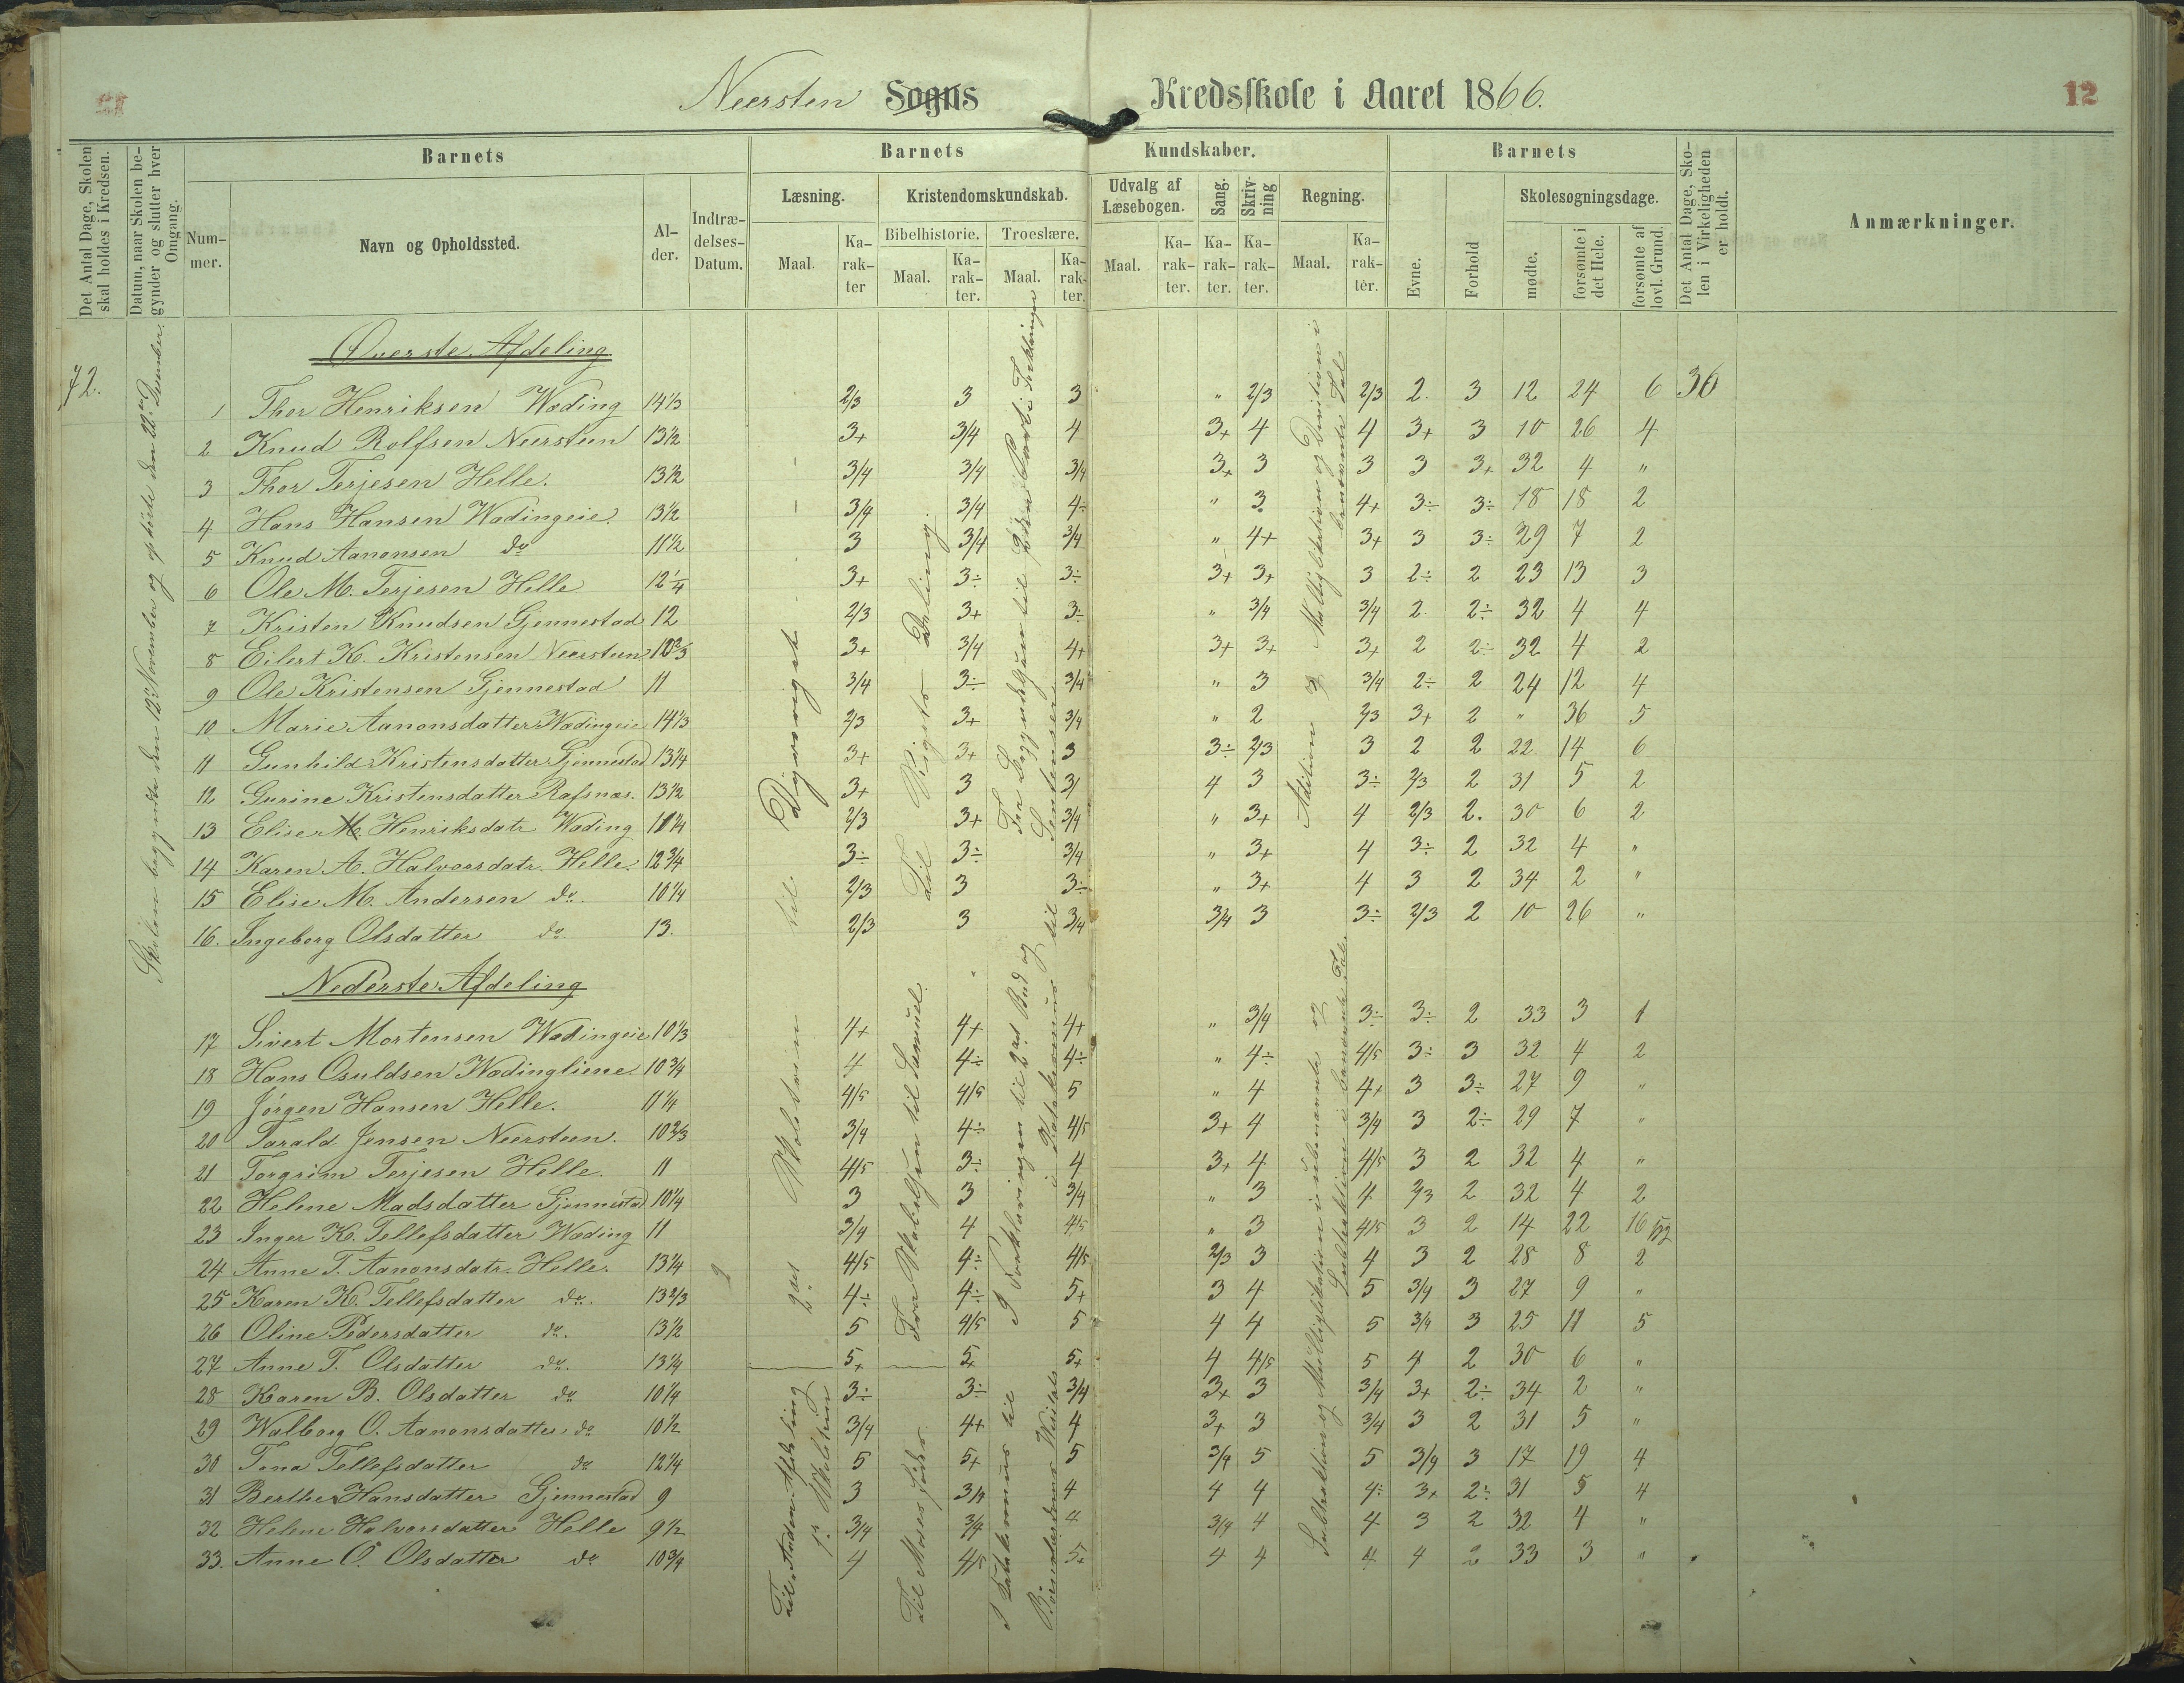 Neersten Sogns Kredsskole i Aaret 1866.
12
Det Antal Dage, Skolen skal holdes i Kredsen.
Datum, naar Skolen begynder og slutter hver Omgang.
Barnets
Nummer.
Navn og Opholdssted.
Alder.
Indtrædelses-Datum.
Barnets Kundskaber.
Læsning.
Maal.
Karakter
Kristendomskundskab.
Bibelhistorie.
Maal.
Karakter.
Troeslære.
Maal.
Karakter.
Udvalg af Læsebogen.
Maal.
Karakter.
Sang.
Karakter.
Skrivning
Karakter.
Regning.
Maal.
Karakter.
Barnets
Evne.
Forhold
Skolesøgningsdage.
mødte.
forsømte i det Hele.
forsømte af lovl. Grund.
Det Antal Dage, Skolen i Virkeligheden er holdt.
Anmærkninger.
72.
Skolen begyndte den 12te November og sluttede den 22de December.
Øverste Afdeling
1 Thor Henriksen Wæding 14 1/3 2/3 3 3 " 2/3 2/3 2. 3 12 24 6 36
2 Knud Rolfsen Neersteen 13 1/2 3+ 3/4 4 3+ 4 4 3+ 3 10 26 4
3 Thor Terjesen Helle. 13 1/2 3/4 3/4 3/4 3+ 3 3 3 3+ 32 4 "
4 Hans Hansen Wædingeie. 13 1/2 3/4 3/4 4÷ " 3 4+ 3÷ 3÷ 18 18 2
5 Knud Aanonsen do 11 1/2 3 3/4 3/4 " 4+ 3+ 3 3÷ 29 7 2
6 Ole M. Terjesen Helle 12 1/4 3+ 3÷ 3÷ 3+ 3+ 3 2÷ 2 23 13 3
7 Kristen Knudsen Gjennestad 12 2/3 3+ 3÷ " 3/4 3/4 2. 2÷ 32 4 4
8 Eilert K. Kristensen Neersteen 10 2/3 3+ 3/4 4+ 3+ 3+ 3+ 2 2÷ 32 4 2
9 Ole Kristensen Gjennestad 11 3/4 3÷ 3/4 " 3 3/4 2÷ 2 24 12 4
10 Marie Aanonsdatter Wædingeie 14 1/3 2/3 3+ 3/4 " 2 2/3 3+ 2 " 36 5
11 Gunhild Kristensdatter Gjennestad 13 1/4 3+ 3+ 3 3÷ 2/3 3 2 2 22 14 6
12 Gurine Kristensdatter Rafsnæs. 13 1/2 3+ 3 3/ 4 3 3÷ 2/3 2 31 5 2
13 Elise M. Henriksdatr Wæding 2/3 3+ 3/4 " 3+ 4 2/3 2. 30 6 2
14 Karen A. Halvorsdatr. Helle. 12 3/4 3÷ 3÷ 3/4 " 3+ 4 3÷ 2 32 4 "
15 Elise M. Andersen do. 10 1/4 2/3 3 3÷ " 3+ 4 3 2 34 2 "
16. Ingeborg Olsdatter do. 13. 2/3 3 3/4 3/4 3 3÷ 2/3 2 10 26 "
til Dyreriget
Til Rigets Deling.
Fra Begyndelsen til 2den Part i Forklaringen
til Sentenser
Adition og Multiplikation og Division i benævnte Tal
Nederste Afdeling
17 Sivert Mortensen Wædingeie 10 1/3 4+ 4+ 4+ " 3/4 3÷ 3÷ 2 33 3 1
18 Hans Osuldsen Wædingliene. 10 3/4 4 4÷ 4÷ " 4÷ 4/5 3÷ 3 32 4 2
19 Jørgen Hansen Helle. 11 1/4 4/5 4/5 5 " 4 4+ 3 3÷ 27 9 "
20 Tarald Jensen Neersteen. 10 2/3 3/4 4÷ 4/5 3+ 4 3/4 3 2÷ 29 7 "
21 Torgrim Terjesen Helle. 11 4/5 3÷ 4 3+ 4 4/5 3 2 32 4 "
22 Helene Madsdatter Gjennestad 10 1/4 3 3 3/4 " 3 4 2/3 2 32 4 2
23 Inger K. Tellefsdatter Wæding 11 3/4 4 4/5 " 3 4/5 3 2 14 22 16
24 Anne T. Aanonsdatr. Helle. 13 1/4 4/5 4÷ 4/5 2/3 3 4 3 2 28 8 2
25 Karen K. Tellefsdatter do. 13 2/3 4÷ 4÷ 5+ 3 4 5 3/4 3 27 9 "
26 Oline Pedersdatter do. 13 1/2 5 4/5 5 4 4 5 3/4 3 25 11 5
27 Anne T. Olsdatter do. 13 1/4 5+ 5+ 5+ 4 4/5 5 4 2 30 6 "
28 Karen B. Olsdatter do 10 1/4 3÷ 3÷ 3/4 3+ 3 3/4 3+ 2÷ 34 2 "
29 Walborg O. Aanonsdatter do 10 1/2 3/4 4+ 4 3+ 3 3/4 3 2 31 5 "
30 Tona Tellefsdatter do 12 1/4 5 5+ 5 3/4 5 5 3/4 3 17 19 4
31 Berthe Hansdatter Gjennestad 9 3 3/4 4 4 4 4÷ 3+ 2÷ 31 5 4
32 Helene Halvorsdatter Helle 9 1/2 3/4 3/4 4 3/4 4 4 3 2 32 4 "
33. Anne O. Olsdatter do 10 3/4 4 4/5 5+ 4 4 4 4 2 33 3 "
2det Skoletrin
Fra Skabelsen til Samuel.
I Forklaringen til 2det Bud og i Katekismus
Multiplikation i ubenævnte og Subtraktion i benævnte Tal.
Til Anden Afdeling 1ste Skoletrin
Til Moses Død
I Katekismus til
Subtraktion og